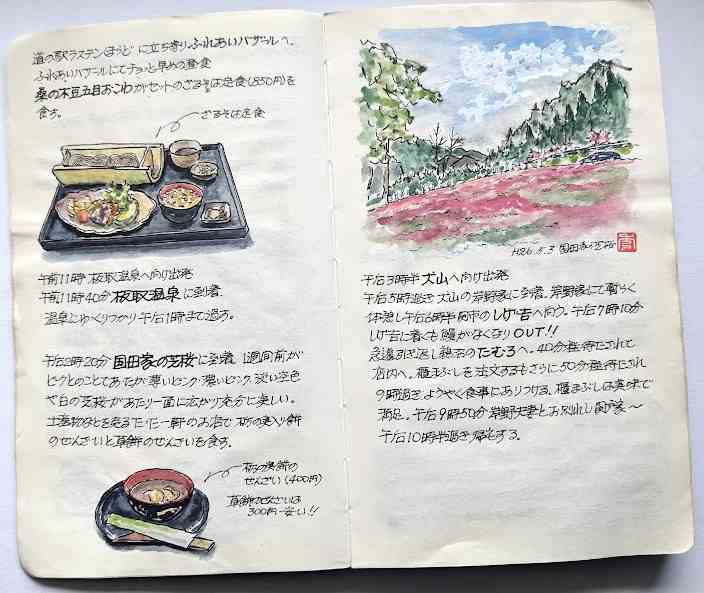 道の駅ラステンほらどに立ち寄りふれあいバザールへ。
ふれあいバザールにてチョット早めの昼食
桑の木豆五目おこわがセットのざるそば定食(850円)を
食す。
ざるそば定食
午前11時 板取温泉へ向け出発
午前11時40分 板取温泉に到着。
温泉にゆっくりつかり午后1時まで過す。
午后2時20分 国田家の芝桜に到着。1週間前が
ピークとのことであったが薄いピンク・濃いピンク・淡い空色
や白の芝桜があたり一面に広がり充分に美しい。
土産物などを売るたった一軒のお店で栃の実入り餅
のぜんざいと草餅のぜんざいを食す。
栃の実餅の
ぜんざい(400円)
草餅ぜんざいは
300円 安い!!
H26.5.3 国田家の芝桜
午后3時半 犬山へ向け出発
午后5時過ぎ犬山の岸野家に到着。岸野家にて暫らく
休憩し午后6時半関市のしげ吉へ向う。午后7時10分
しげ吉に着くも鰻がなくなりOUT!!
急遽引き返し のたむろへ。40分程待たされて
店内へ。櫃まぶしを注文するもさらに50分程待たされ
9時過ぎようやく食事にありつける。櫃まぶしは美味で
満足。午后9時50分岸野夫妻とお別れし 家へ
午后10時半過ぎ帰宅する。